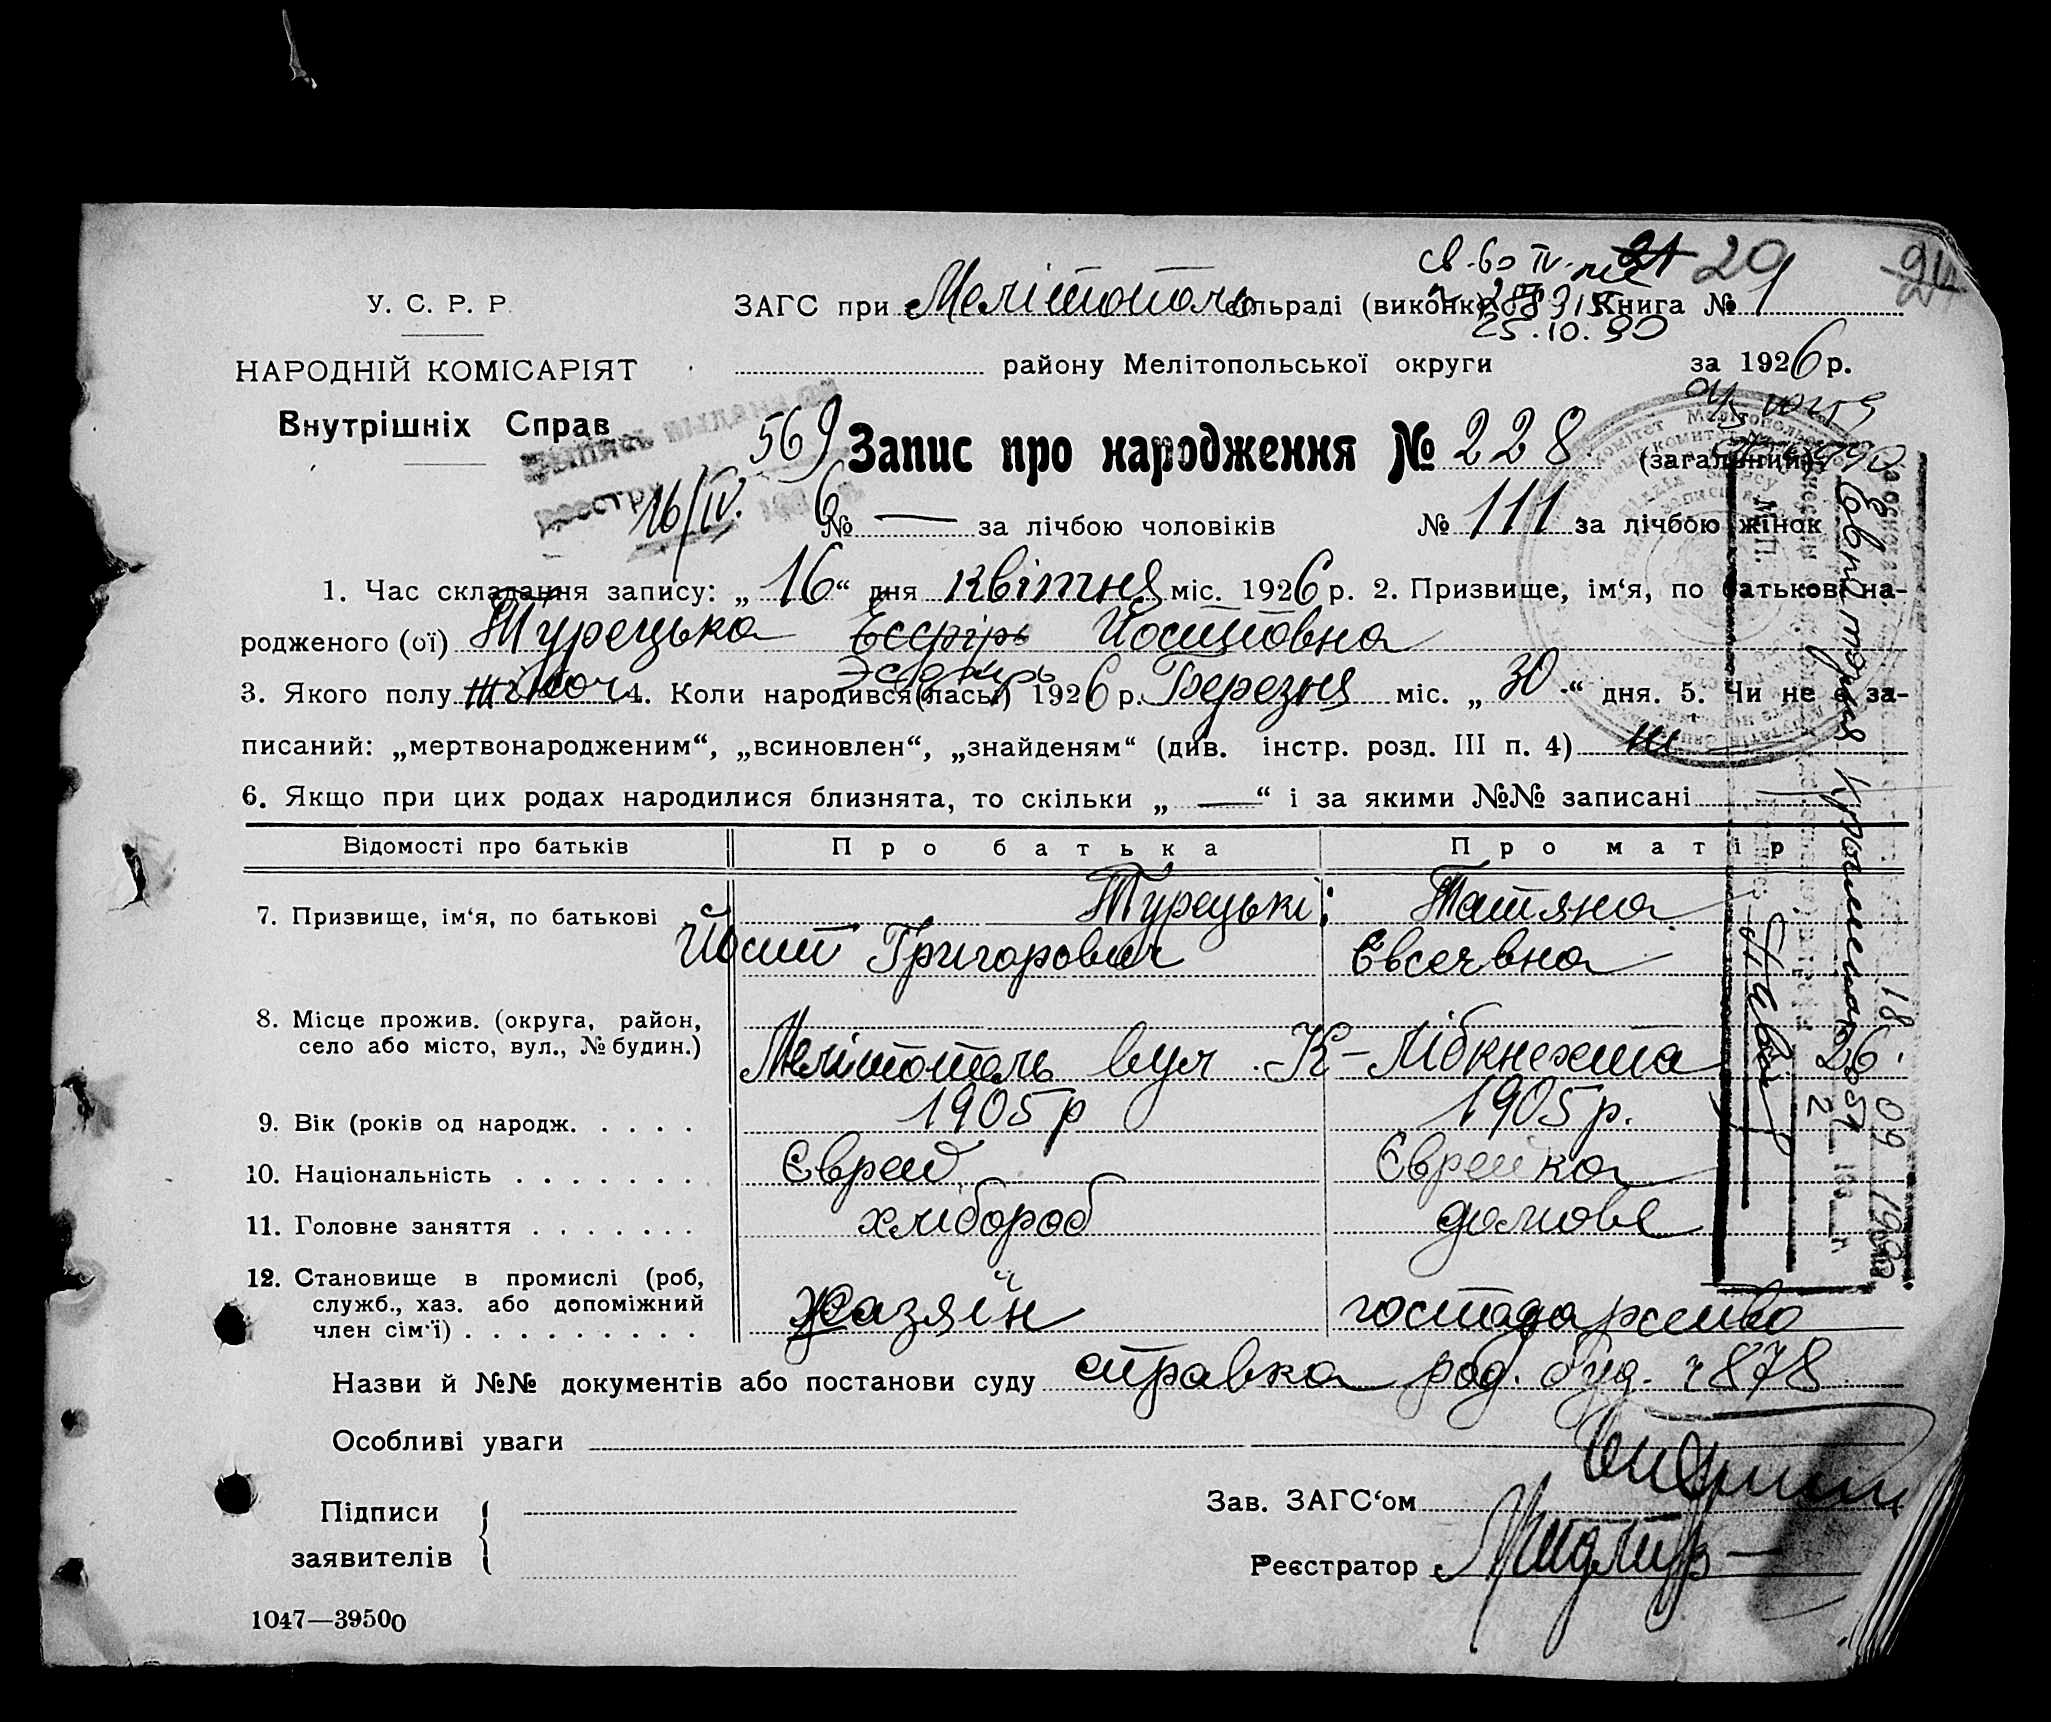 св-во IV-
29
У. С. Р. Р.
ЗАГС при Мелітополь сільраді (виконк) Книга № 1
25.10.90
НАРОДНІЙ КОМІСАРІЯТ
району Мелітопольської округи за 1926 р.
Внутрішніх Справ
569 Запис про народження № 228 (загальний)
16/IV. 6 № — за лічбою чоловіків № 111 за лічбою жінок
М.П.
1. Час складання запису: „ 16 “ дня квітня міс. 1926 р. 2. Призвище, ім‘я, по батькові на-
родженого (ої) Турецька Есфірь Йосиповна
Эсфирь
3. Якого полу жіноч 4. Коли народився(лась) 1926 р. Березня міс. „ 30 “ дня. 5. Чи не є за-
писаний: „мертвонародженим“, „всиновлен“, „знайденям“ (див. інстр. розд. III п. 4) ні
6. Якщо при цих родах народилися близнята, то скільки „ — “ і за якими №№ записані
Відомості про батьків Про батька Про матір
7. Призвище, ім‘я, по батькові Турецькі: Татяна
Йосип Григорович Євсеєвна
8. Місце прожив. (округа, район,
село або місто, вул., № будин.)
Мелітополь вул. К-Лібкнехта
9. Вік (років од народж. . . . . 1905 р 1905 р.
10. Національність . . . . . . . Єврей Єврейка
11. Головне заняття . . . . . . . хлібороб домове
12. Становище в промислі (роб,
служб., хаз. або допоміжний
член сім‘ї) . . . . . . . . . Хазяїн господарство
Назви й №№ документів або постанови суду справка род. буд. ч 878
Особливі уваги
Підписи
заявителів
Зав. ЗАГС‘ом
Реєстратор
1047—39500